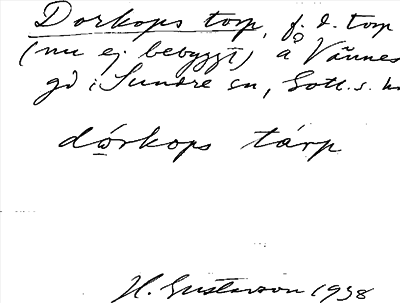 Dorkops torp, f. d. torp
(nu ej bebyggt) å Vännes
gd i Sundre sn, Gotl.s.
dórkops tárp
H. Gustavson 1938